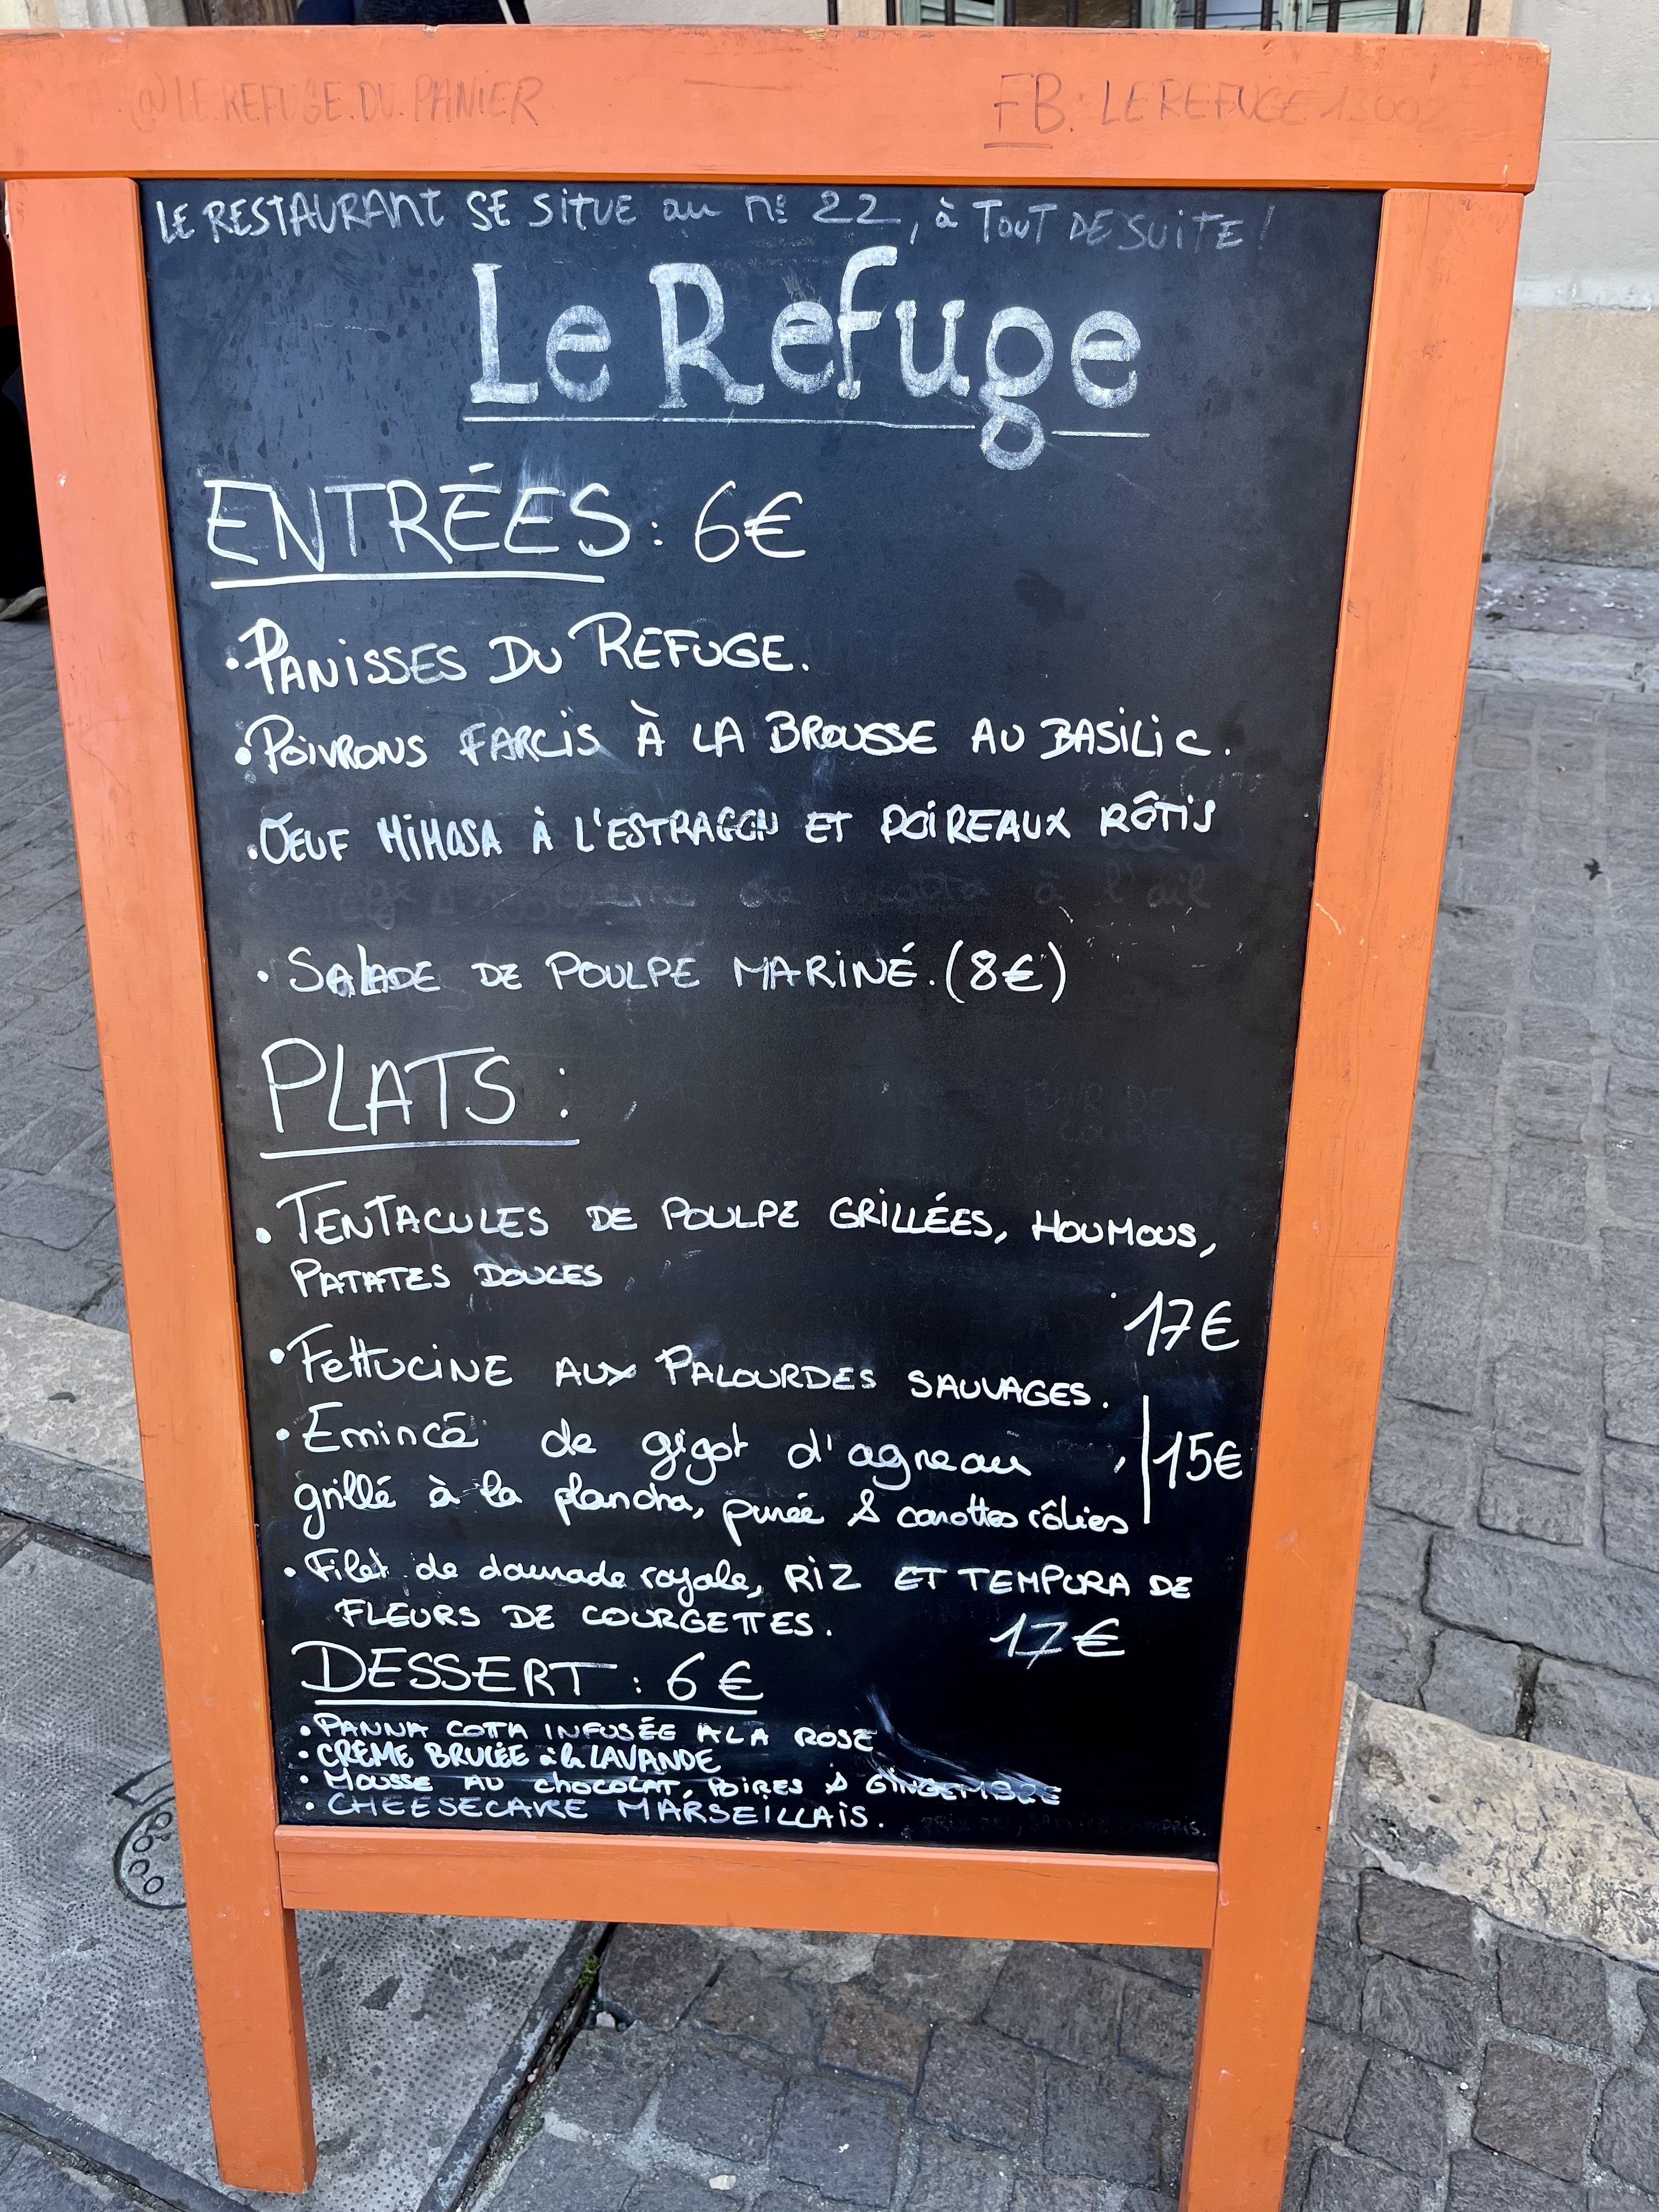 @LE.REFUGE.DU.PANIER
FB: LEREFUGE13002
LE RESTAURANT SE SITUE au n° 22, à TOUT DE SUITE!
Le Refuge
ENTRÉES: 6€
• PANISSES DU REFUGE.
• POIVRONS FARCIS À LA BROUSSE AU BASILIC.
• OEUF MIMOSA À L'ESTRAGON ET POIREAUX RÔTIS
• SALADE DE POULPE MARINÉ. (8€)
PLATS:
• TENTACULES DE POULPE GRILLÉES, HOUMOUS,
PATATES DOUCES
17€
• FETTUCINE AUX PALOURDES SAUVAGES.
• Emincé de gigot d'agneau,
grillé à la plancha, purée & carottes rôties
15€
• Filet de daurade royale, RIZ ET TEMPURA DE
FLEURS DE COURGETTES.
17€
DESSERT: 6€
• PANNA COTTA INFUSÉE A LA ROSE
• CRÈME BRULÉE à la LAVANDE
• MOUSSE AU CHOCOLAT, POIRES & GINGEMBRE
• CHEESECAKE MARSEILLAIS.